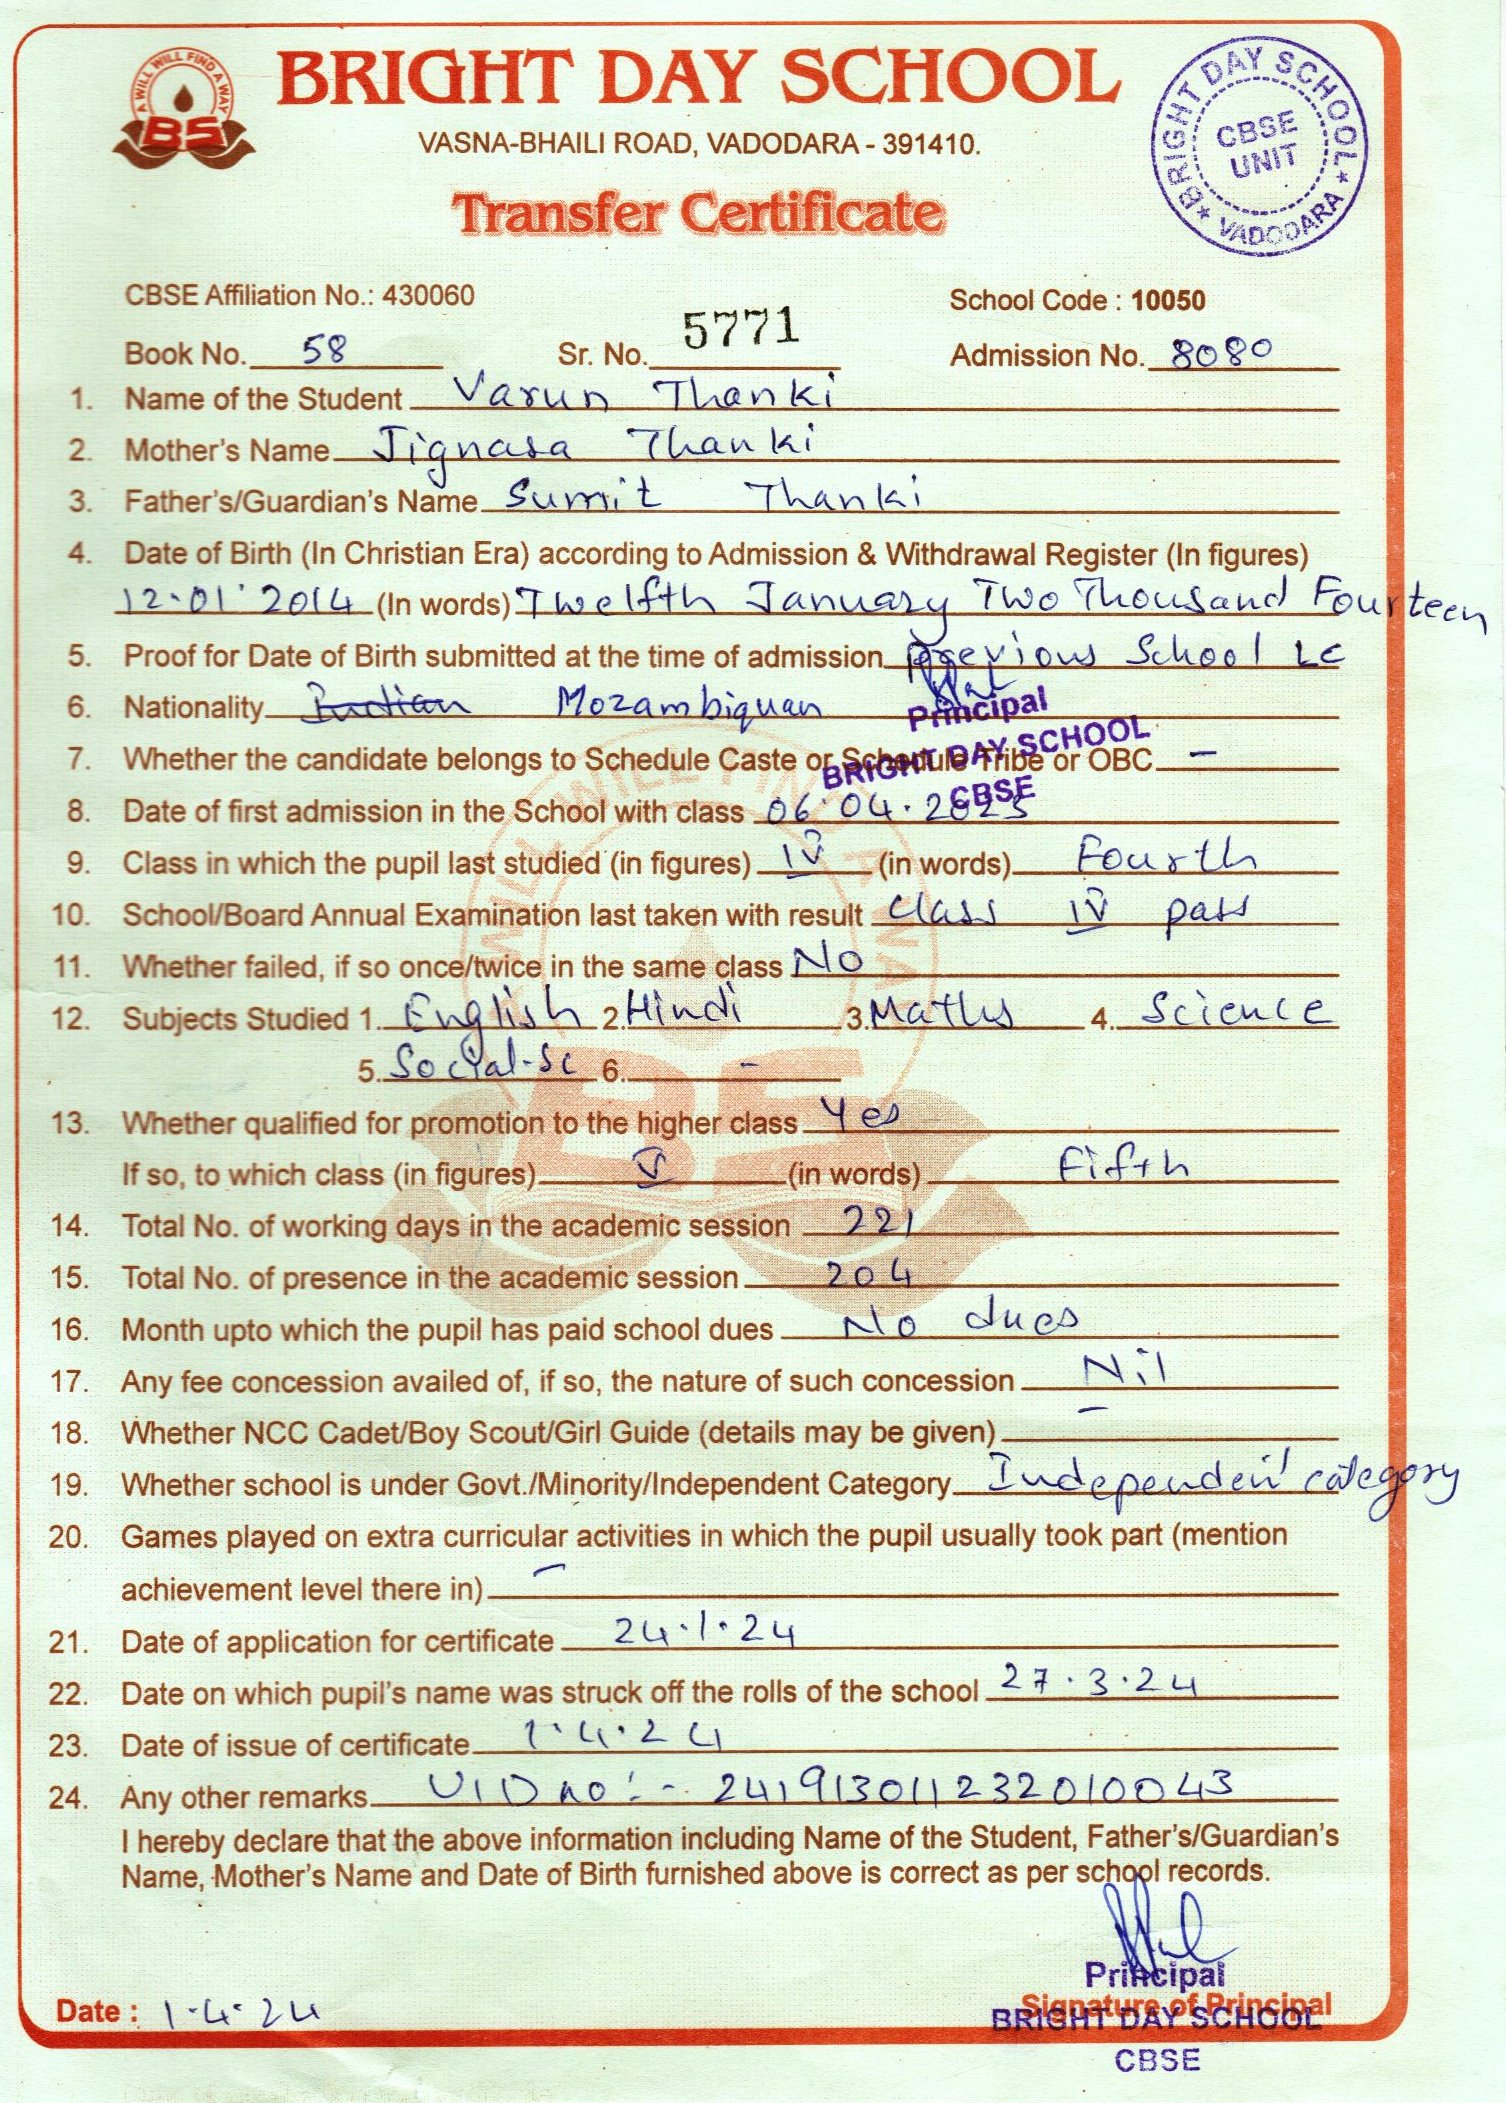 A WILL WILL FIND A WAY
BS
BRIGHT DAY SCHOOL
VASNA-BHAILI ROAD, VADODARA - 391410.
BRIGHT DAY SCHOOL
CBSE
UNIT
★ VADODARA ★
Transfer Certificate
CBSE Affiliation No.: 430060
School Code : 10050
Book No. 58 Sr. No. 5771 Admission No. 8080
1. Name of the Student Varun Thanki
2. Mother's Name Jignasa Thanki
3. Father's/Guardian's Name Sumit Thanki
4. Date of Birth (In Christian Era) according to Admission & Withdrawal Register (In figures)
12.01.2014 (In words) Twelfth January Two Thousand Fourteen
5. Proof for Date of Birth submitted at the time of admission Previous School LC
6. Nationality Indian Mozambiquan
Principal
BRIGHT DAY SCHOOL
CBSE
7. Whether the candidate belongs to Schedule Caste or Schedule Tribe or OBC -
8. Date of first admission in the School with class 06.04.2023
9. Class in which the pupil last studied (in figures) IV (in words) Fourth
10. School/Board Annual Examination last taken with result Class IV pass
11. Whether failed, if so once/twice in the same class No
12. Subjects Studied 1. English 2. Hindi 3. Maths 4. Science
5. Social.Sc 6. -
13. Whether qualified for promotion to the higher class Yes
If so, to which class (in figures) V (in words) Fifth
14. Total No. of working days in the academic session 221
15. Total No. of presence in the academic session 204
16. Month upto which the pupil has paid school dues No dues
17. Any fee concession availed of, if so, the nature of such concession Nil
18. Whether NCC Cadet/Boy Scout/Girl Guide (details may be given) -
19. Whether school is under Govt./Minority/Independent Category Independent category
20. Games played on extra curricular activities in which the pupil usually took part (mention
achievement level there in) -
21. Date of application for certificate 24.1.24
22. Date on which pupil's name was struck off the rolls of the school 27.3.24
23. Date of issue of certificate 1.4.24
24. Any other remarks UID no :- 241913011232010043
I hereby declare that the above information including Name of the Student, Father's/Guardian's
Name, Mother's Name and Date of Birth furnished above is correct as per school records.
Principal
Date : 1.4.24 Signature of Principal
BRIGHT DAY SCHOOL
CBSE